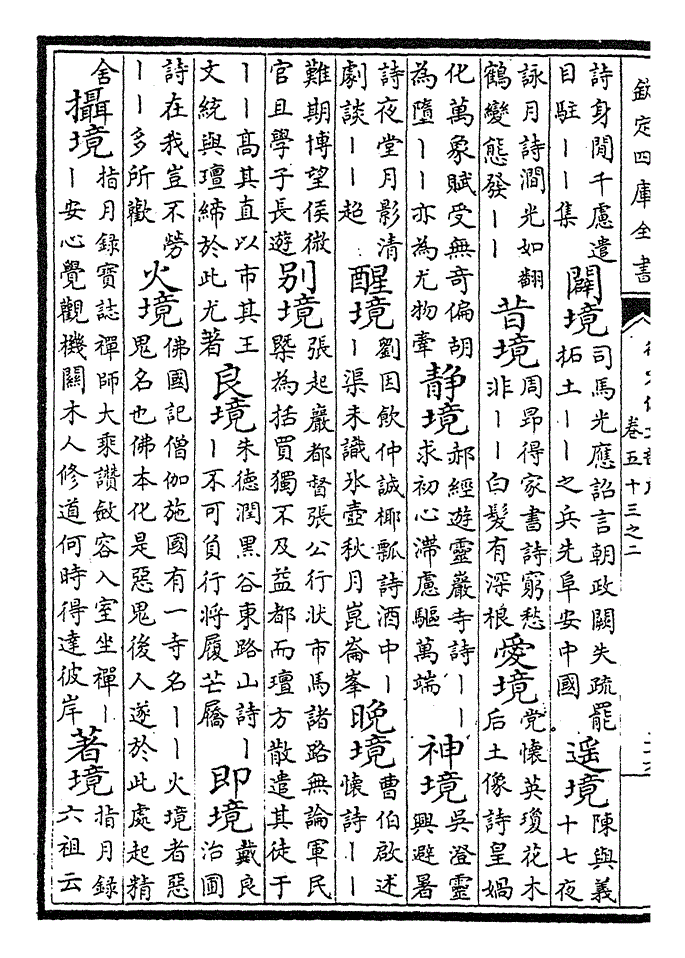 欽定四庫全書
卷五十三之二
詩身閒千慮遣
目駐丨丨集
闢境
司馬光應詔言朝政闕失疏罷
拓土丨丨之兵先阜安中國
遥境
陳與義
十七夜
詠月詩澗光如翻
鶴變態發丨丨
昔境
周昂得家書詩窮愁
非丨丨白髮有深根
愛境
党懷英瓊花木
后土像詩皇媧
化萬象賦受無奇偏胡
為墮丨丨亦為尤物牽
静境
郝經遊靈巖寺詩丨丨
求初心滯慮驅萬端
神境
吳澄靈
興避暑
詩夜堂月影清
劇談丨丨超
醒境
劉因飲仲誠椰瓢詩酒中丨
丨渠未識氷壺秋月崑崙峯
晚境
曹伯啟述
懷詩丨丨
難期博望侯微
官且學子長遊
别境
張起巖都督張公行狀市馬諸路無論軍民
槩為括買獨不及益都而璮方散遣其徒于
丨丨高其直以市其王
文統與璮締於此尤著
良境
朱德潤黑谷東路山詩丨
丨不可負行将履芒屩
即境
戴良
治圃
詩在我豈不勞
丨丨多所歡
火境
佛國記僧伽施國有一寺名丨丨火境者惡
鬼名也佛本化是惡鬼後人遂於此處起精
舍
攝境
指月錄寶誌禪師大乘讚斂容入室坐禪丨
丨安心覺觀機關木人修道何時得達彼岸
著境
指月錄
六祖云